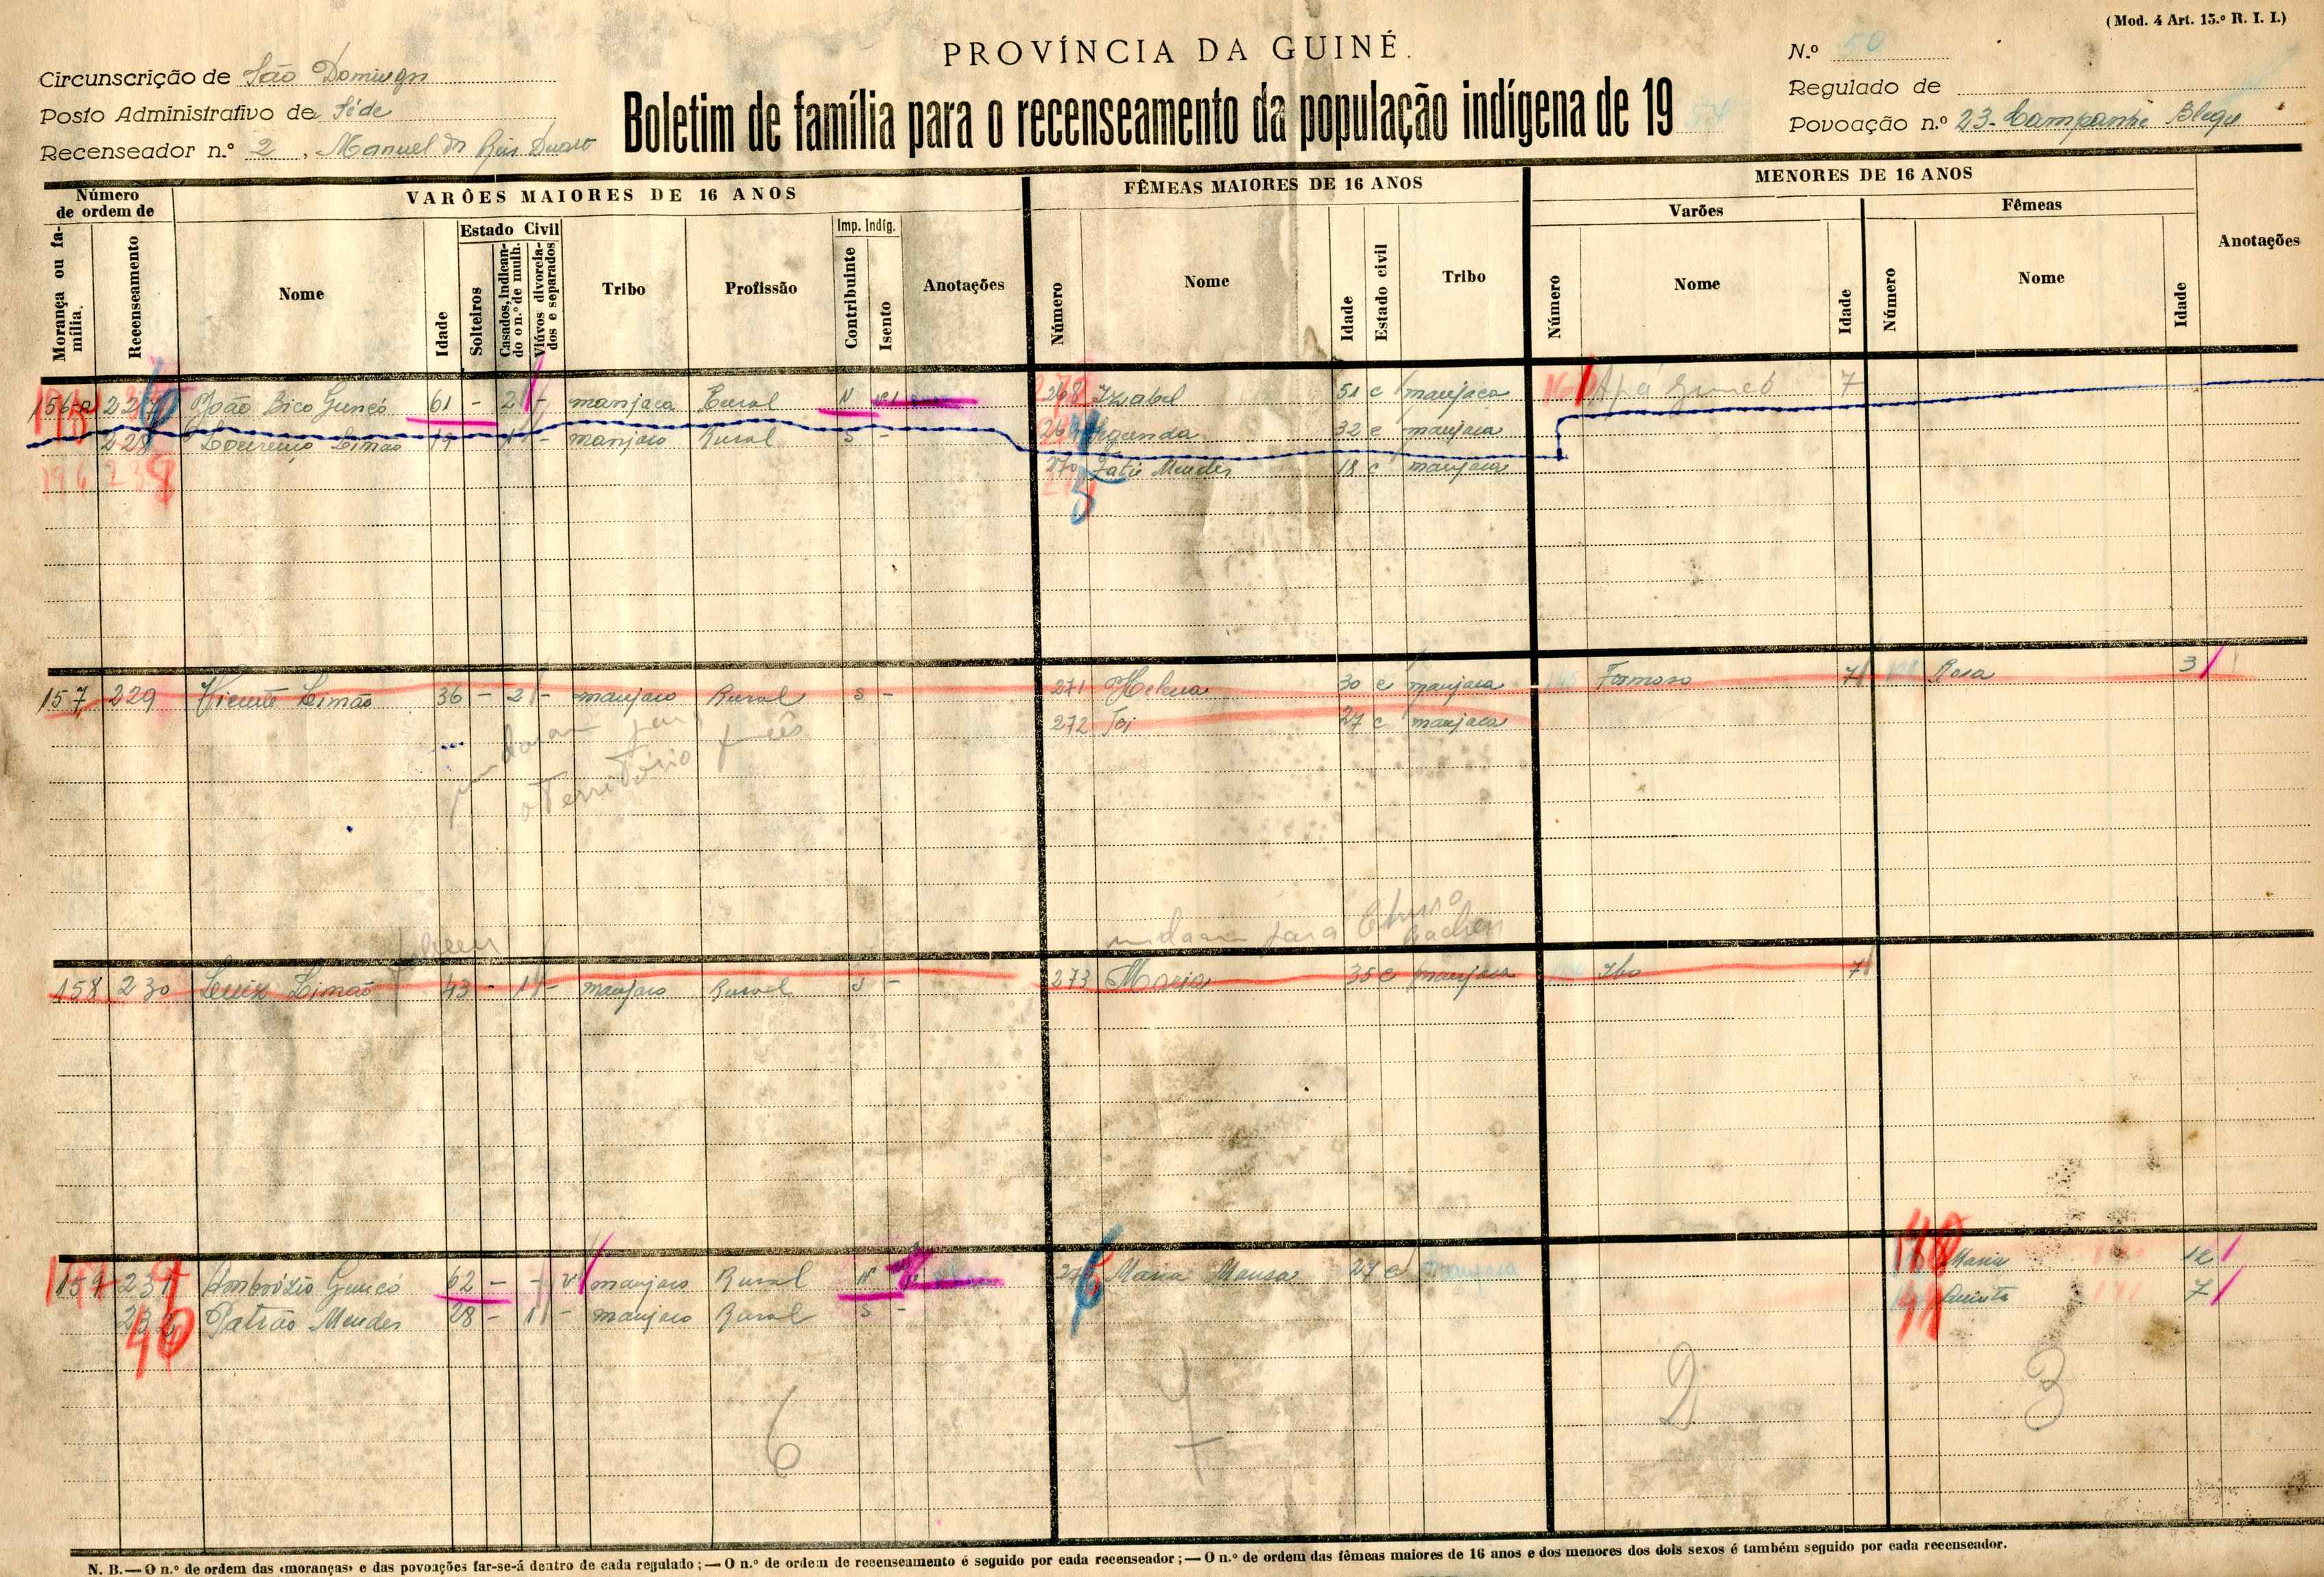 (Mod. 4 Art. 15.º R. I. I.)
PROVÍNCIA DA GUINÉ.
N.º 50
Circunscrição de São Domingos
Regulado de
Posto Administrativo de Séde
Boletim de família para o recenseamento da população indígena de 1954
Povoação n.º 23-Campanhe
Recenseador n.º 2, Manuel dos Reis Duarte
Número de ordem de
VARÕES MAIORES DE 16 ANOS
FÊMEAS MAIORES DE 16 ANOS
MENORES DE 16 ANOS
Varões
Fêmeas
Morança ou família.
Recenseamento
Nome
Idade
Estado Civil
Solteiros
Casados, indicando o n.º de mulh.
Viúvos divorciados e separados
Tribo
Profissão
Imp. Indíg.
Contribuinte
Isento
Anotações
Número
Nome
Idade
Estado civil
Tribo
Número
Nome
Idade
Número
Nome
Idade
Anotações
João Bico 61 - 2 - manjaca Rural 268 Izabel 51 c manjaca 7
228 Lourenço Limão 19 - 1 - manjaco Rural S - 269 Segunda 32 c manjaca
270 Mendes 18 c manjaca
196 238
157 229 Vicente Limão 36 - 2 - manjaco Rural S - 271 Helena 30 c manjaca Formoso 7 Rosa 3
272 27 c manjaca
mudaram para
o território francês
mudaram para
158 230 Luiz Limão 43 - 1 - manjaco Rural S - 273 Maria 35 c manjaca 7
159 231 Ambrózio 62 - - V manjaco Rural N Maria Mansa 27 c manjaca Maria 12
232 Patrão Mendes 28 - 1 - manjaco Rural S - Quinta 7
6 4 2 3
N. B. — O n.º de ordem das «moranças» e das povoações far-se-á dentro de cada regulado; — O n.º de ordem de recenseamento é seguido por cada recenseador; — O n.º de ordem das fêmeas maiores de 16 anos e dos menores dos dois sexos é também seguido por cada recenseador.